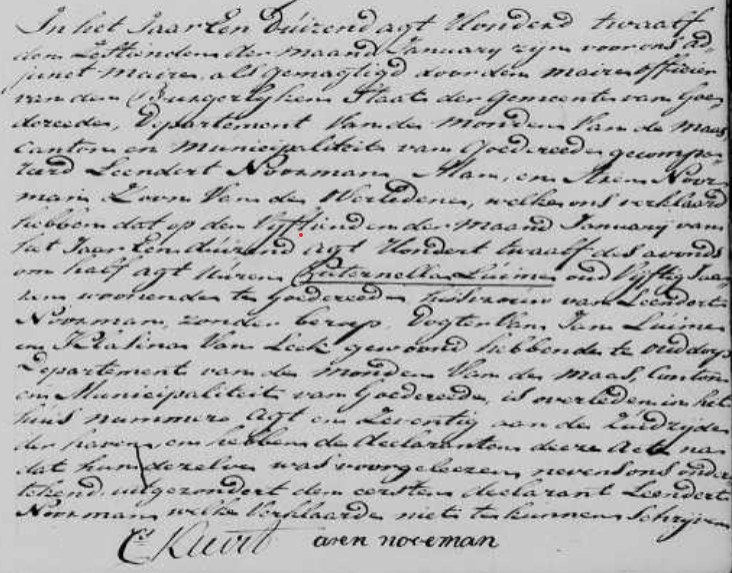 In het Jaar Een duizend agt Honderd twaalf
den Zestienden der maand January zijn voor ons ad,
junct maire, als gemagtigd door den maire officier
van den Burgerlyken Staat der gemeente van Goe
dereede, Departement Van de Monden Van de Maas
Canton en Municipaliteit van Goedereede gecompa
reerd Leendert Noorman, Man, en Aren Noor
man Zoon Van de Overledene, welke ons verklaard
hebben dat op den Vyftienden der Maand January van
het Jaar Een duizend agt Hondert twaalf des avonds
om half agt Uuren Pieternella Luime oud Vyftig Jaa
ren woonende te Goedereede, huisvrouw van Leendert
Noorman, zonder beroep, Dogter Van Jan Luime
en Katalina Van Leek gewoond hebbende te ouddorp
Departement van de Monden Van de Maas, Canton
en Municipaliteit van Goedereede, is overleden in het
huis nummero agt en Zeventig aan de Zuidzyde
der haven, en hebben de declaranten deeze Acte na
dat hun dezelve was voorgeleezen nevens ons onder
tekend, uitgezonderd den eersten declarant Leendert
Noorman, welke Verklaarde niet te kunnen Schryven
aren nooeman